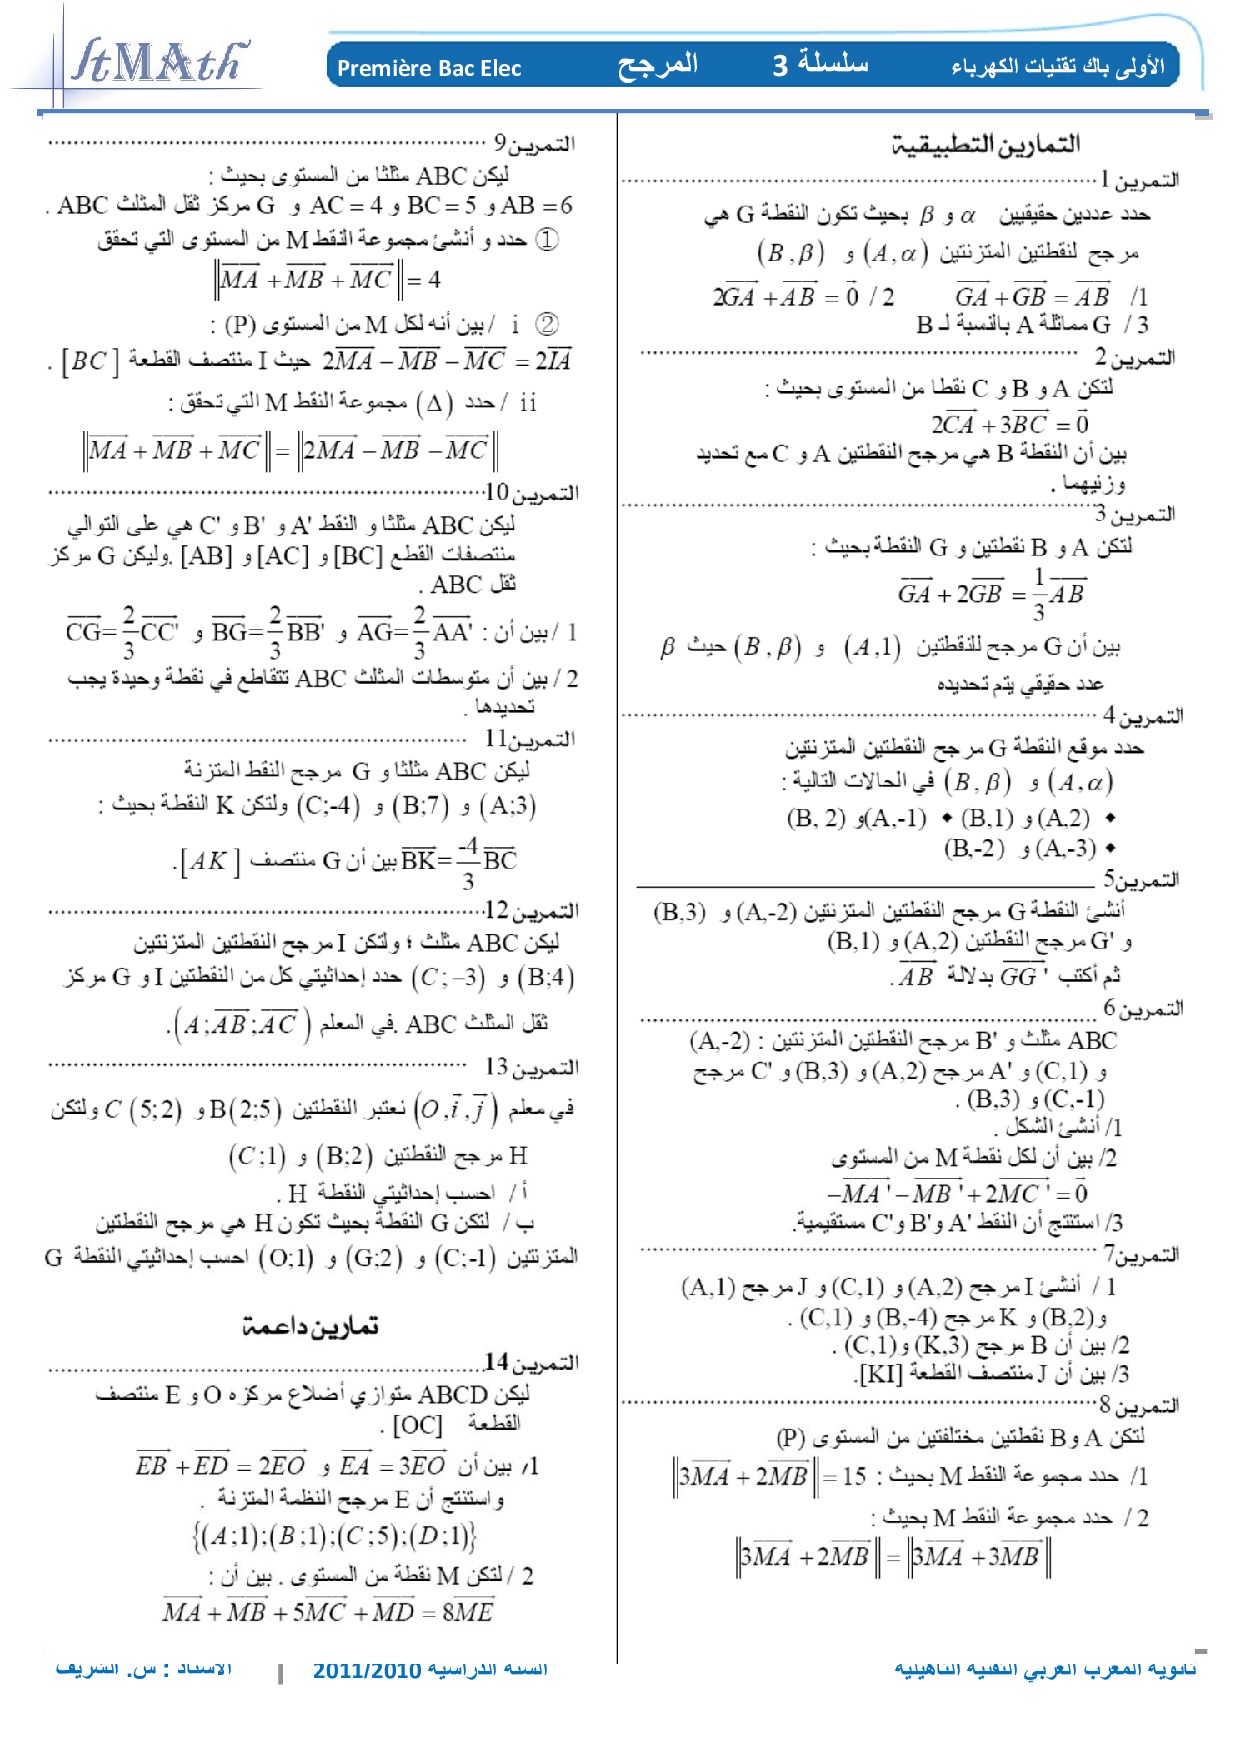 ltMAth
الأولى باك تقنيات الكهرباء سلسلة 3 المرجح Première Bac Elec
التمارين التطبيقية
التمرين 1
حدد عددين حقيقيين α و β بحيث تكون النقطة G هي
مرجح لنقطتين المتزنتين (A,α) و (B,β)
1/ $\overrightarrow{GA}+\overrightarrow{GB}=\overrightarrow{AB}$ 2/ $2\overrightarrow{GA}+\overrightarrow{AB}=\vec{0}$
3 / G مماثلة A بالنسبة لـ B
التمرين 2
لتكن A و B و C نقطا من المستوى بحيث :
$2\overrightarrow{CA}+3\overrightarrow{BC}=\vec{0}$
بين أن النقطة B هي مرجح النقطتين A و C مع تحديد
وزنيهما .
التمرين 3
لتكن A و B نقطتين و G النقطة بحيث :
$\overrightarrow{GA}+2\overrightarrow{GB}=\frac{1}{3}\overrightarrow{AB}$
بين أن G مرجح للنقطتين (A,1) و (B,β) حيث β
عدد حقيقي يتم تحديده
التمرين 4
حدد موقع النقطة G مرجح النقطتين المتزنتين
(A,α) و (B,β) في الحالات التالية :
♦ (A,2) و (B,1) ♦ (A,-1) و (B, 2)
♦ (A,-3) و (B,-2)
التمرين 5
أنشئ النقطة G مرجح النقطتين المتزنتين (A,-2) و (B,3)
و G' مرجح النقطتين (A,2) و (B,1)
ثم أكتب $\overrightarrow{GG'}$ بدلالة $\overrightarrow{AB}$ .
التمرين 6
ABC مثلث و B' مرجح النقطتين المتزنتين : (A,-2)
و (C,1) و A' مرجح (A,2) و (B,3) و C' مرجح
(C,-1) و (B,3) .
1/ أنشئ الشكل .
2/ بين أن لكل نقطة M من المستوى
$-\overrightarrow{MA'}-\overrightarrow{MB'}+2\overrightarrow{MC'}=\vec{0}$
3/ استنتج أن النقط A' و B' و C' مستقيمية.
التمرين 7
1 / أنشئ I مرجح (A,2) و (C,1) و J مرجح (A,1)
و (B,2) و K مرجح (B,-4) و (C,1) .
2/ بين أن B مرجح (K,3) و (C,1) .
3/ بين أن J منتصف القطعة [KI].
التمرين 8
لتكن A و B نقطتين مختلفتين من المستوى (P)
1/ حدد مجموعة النقط M بحيث : $\|3\overrightarrow{MA}+2\overrightarrow{MB}\|=15$
2 / حدد مجموعة النقط M بحيث :
$\|3\overrightarrow{MA}+2\overrightarrow{MB}\|=\|3\overrightarrow{MA}+3\overrightarrow{MB}\|$
التمرين 9
ليكن ABC مثلثا من المستوى بحيث :
AB = 6 و BC = 5 و AC = 4 و G مركز ثقل المثلث ABC .
① حدد و أنشئ مجموعة النقط M من المستوى التي تحقق
$\|\overrightarrow{MA}+\overrightarrow{MB}+\overrightarrow{MC}\|=4$
② i / بين أنه لكل M من المستوى (P) :
$2\overrightarrow{MA}-\overrightarrow{MB}-\overrightarrow{MC}=2\overrightarrow{IA}$ حيث I منتصف القطعة [BC] .
ii / حدد (Δ) مجموعة النقط M التي تحقق :
$\|\overrightarrow{MA}+\overrightarrow{MB}+\overrightarrow{MC}\|=\|2\overrightarrow{MA}-\overrightarrow{MB}-\overrightarrow{MC}\|$
التمرين 10
ليكن ABC مثلثا و النقط A' و B' و C' هي على التوالي
منتصفات القطع [BC] و [AC] و [AB] .وليكن G مركز
ثقل ABC .
1 / بين أن : $\overrightarrow{AG}=\frac{2}{3}\overrightarrow{AA'}$ و $\overrightarrow{BG}=\frac{2}{3}\overrightarrow{BB'}$ و $\overrightarrow{CG}=\frac{2}{3}\overrightarrow{CC'}$
2 / بين أن متوسطات المثلث ABC تتقاطع في نقطة وحيدة يجب
تحديدها .
التمرين 11
ليكن ABC مثلثا و G مرجح النقط المتزنة
(A;3) و (B;7) و (C;-4) ولتكن K النقطة بحيث :
$\overrightarrow{BK}=\frac{-4}{3}\overrightarrow{BC}$ بين أن G منتصف [AK].
التمرين 12
ليكن ABC مثلث ؛ ولتكن I مرجح النقطتين المتزنتين
(B;4) و (C;-3) حدد إحداثيتي كل من النقطتين I و G مركز
ثقل المثلث ABC .في المعلم $(A;\overrightarrow{AB};\overrightarrow{AC})$.
التمرين 13
في معلم $(O,\vec{i},\vec{j})$ نعتبر النقطتين B(2;5) و C(5;2) ولتكن
H مرجح النقطتين (B;2) و (C;1)
أ / احسب إحداثيتي النقطة H .
ب / لتكن G النقطة بحيث تكون H هي مرجح النقطتين
المتزنتين (C;-1) و (G;2) و (O;1) احسب إحداثيتي النقطة G
تمارين داعمة
التمرين 14
ليكن ABCD متوازي أضلاع مركزه O و E منتصف
القطعة [OC] .
1/ بين أن $\overrightarrow{EA}=3\overrightarrow{EO}$ و $\overrightarrow{EB}+\overrightarrow{ED}=2\overrightarrow{EO}$
واستنتج أن E مرجح النظمة المتزنة .
{(A;1);(B;1);(C;5);(D;1)}
2 / لتكن M نقطة من المستوى . بين أن :
$\overrightarrow{MA}+\overrightarrow{MB}+5\overrightarrow{MC}+\overrightarrow{MD}=8\overrightarrow{ME}$
ثانوية المغرب العربي التقنية التأهيلية السنة الدراسية 2011/2010 | الأستاذ : س. الشريف